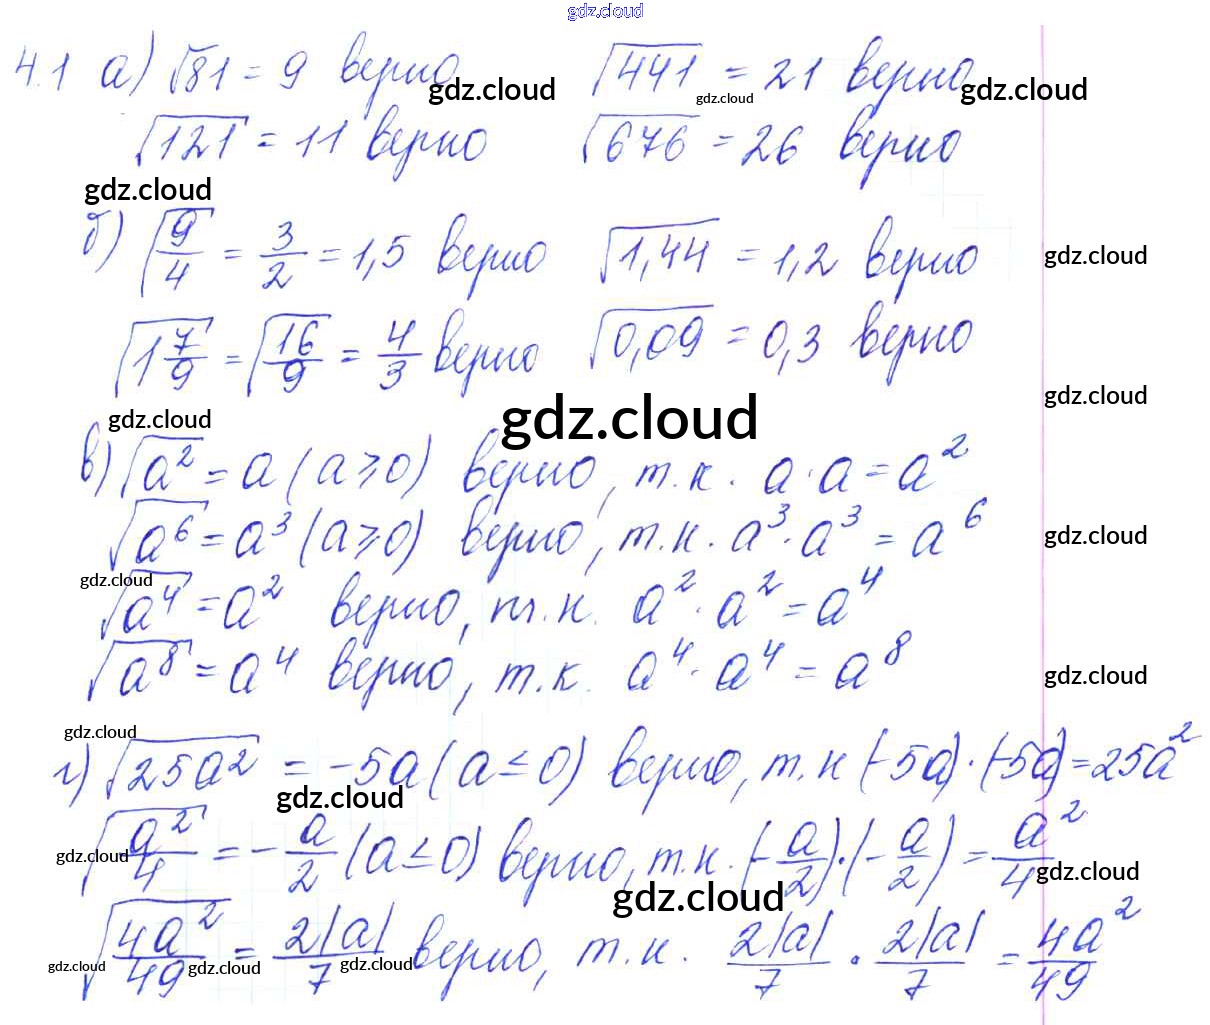 gdz.cloud
4.1 а) √81 = 9 верно √441 = 21 верно
gdz.cloud gdz.cloud gdz.cloud
√121 = 11 верно √676 = 26 верно
gdz.cloud
б) √(9/4) = 3/2 = 1,5 верно √1,44 = 1,2 верно
gdz.cloud
√(1 7/9) = √(16/9) = 4/3 верно √0,09 = 0,3 верно
gdz.cloud
gdz.cloud gdz.cloud
в) √a² = a (a ≥ 0) верно, т.к. a · a = a²
√a⁶ = a³ (a ≥ 0) верно, т.к. a³ · a³ = a⁶
gdz.cloud
gdz.cloud
√a⁴ = a² верно, т.к. a² · a² = a⁴
√a⁸ = a⁴ верно, т.к. a⁴ · a⁴ = a⁸
gdz.cloud
gdz.cloud
г) √25a² = -5a (a ≤ 0) верно, т.к (-5a) · (-5a) = 25a²
gdz.cloud
√(a²/4) = - a/2 (a ≤ 0) верно, т.к. (- a/2) · (- a/2) = a²/4
gdz.cloud gdz.cloud
gdz.cloud
√(4a²/49) = 2|a|/7 верно, т.к. 2|a|/7 · 2|a|/7 = 4a²/49
gdz.cloud gdz.cloud gdz.cloud